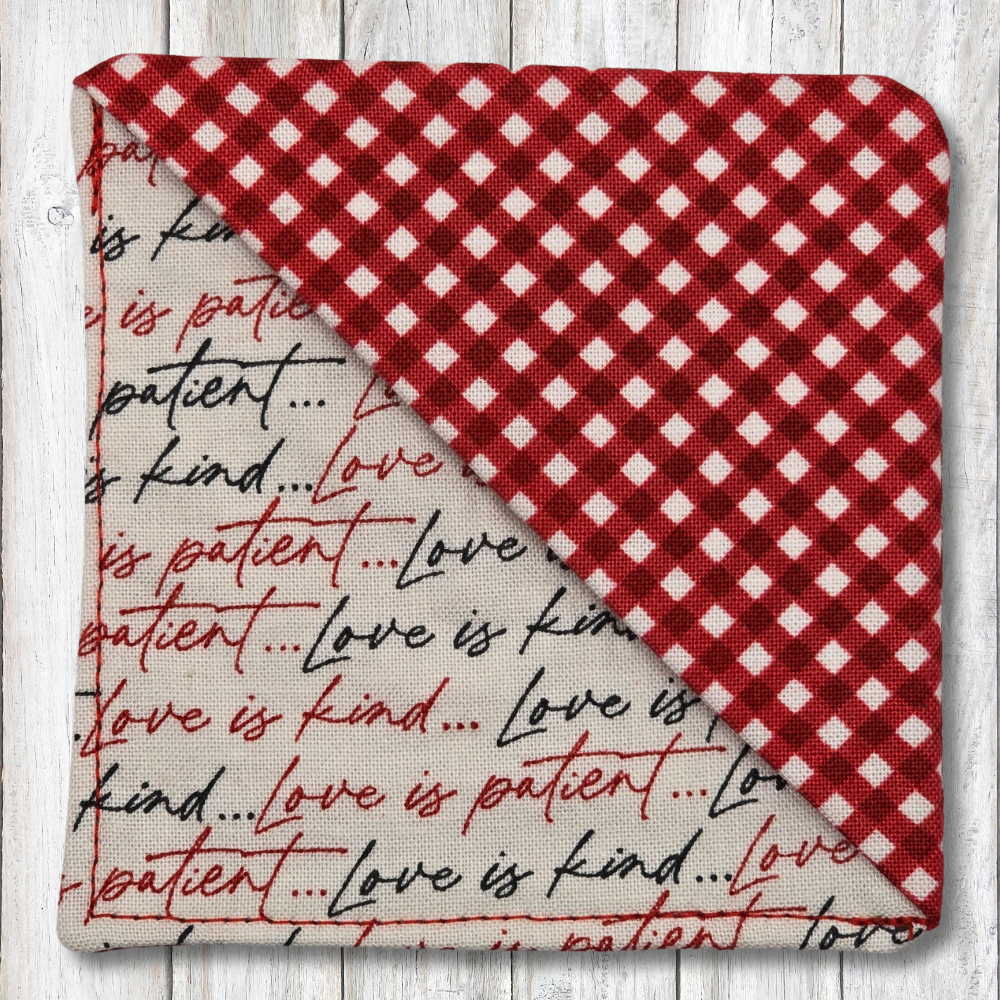 is
is patie
patient... L
is kind...Love
is patient...Love
patient...Love is kin
Love is kind... Love is
kind...Love is patient...Lo
patient...Love is kind...Love
is patient Love